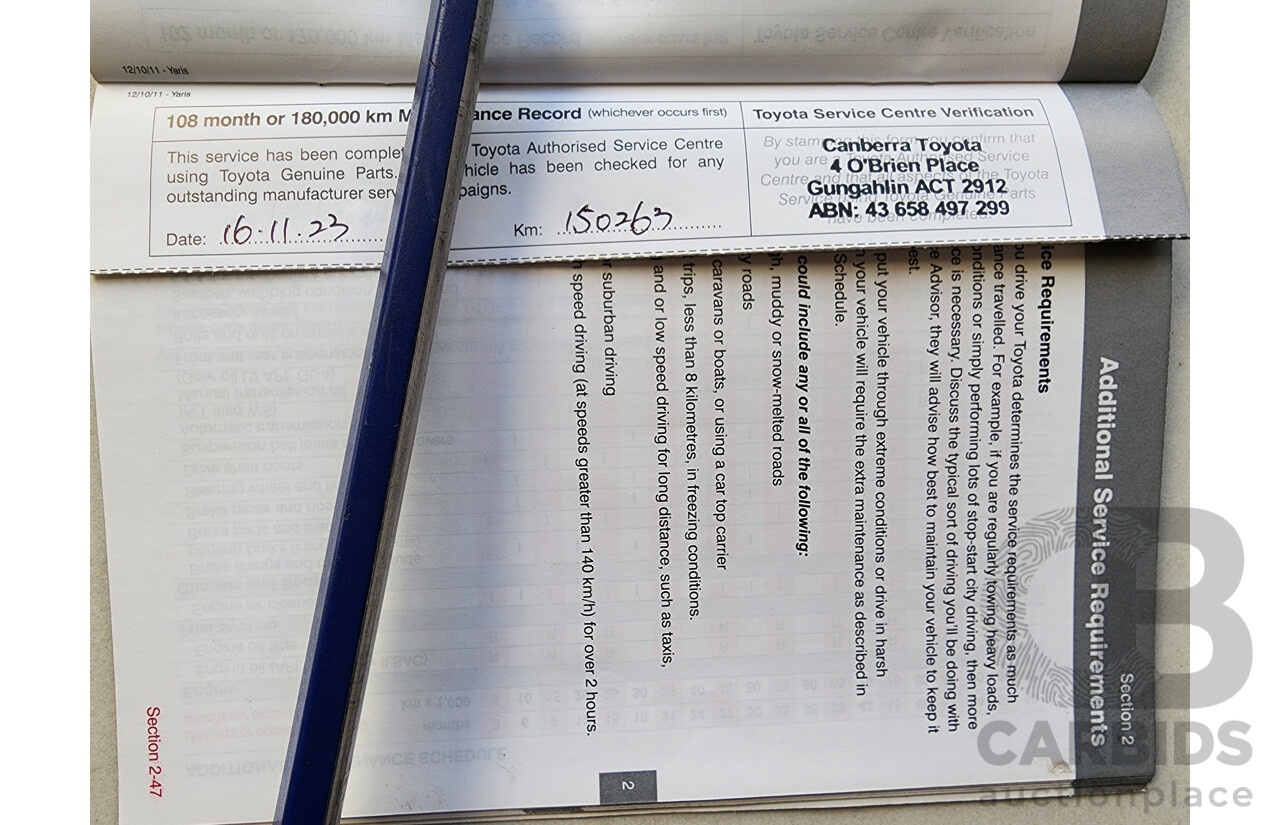 12/10/11 - Yaris
12/10/11 - Yaris
108 month or 180,000 km M ance Record (whichever occurs first)
This service has been complet Toyota Authorised Service Centre
using Toyota Genuine Parts. hicle has been checked for any
outstanding manufacturer serv paigns.
Date: 16.11.23 Km: 150263
Toyota Service Centre Verification
By stamping this form you confirm that
you are a Toyota Authorised Service
Centre and that all aspects of the Toyota
Service using Toyota Genuine Parts
have been completed.
Canberra Toyota
4 O'Brien Place
Gungahlin ACT 2912
ABN: 43 658 497 299
Section 2
Additional Service Requirements
ice Requirements
ou drive your Toyota determines the service requirements as much
ance travelled. For example, if you are regularly towing heavy loads,
onditions or simply performing lots of stop-start city driving, then more
ce is necessary. Discuss the typical sort of driving you'll be doing with
e Advisor, they will advise how best to maintain your vehicle to keep it
est.
put your vehicle through extreme conditions or drive in harsh
n your vehicle will require the extra maintenance as described in
Schedule.
could include any or all of the following:
gh, muddy or snow-melted roads
y roads
caravans or boats, or using a car top carrier
trips, less than 8 kilometres, in freezing conditions.
and or low speed driving for long distance, such as taxis,
r suburban driving
h speed driving (at speeds greater than 140 km/h) for over 2 hours.
2
Section 2-47
CB
CARBIDS
auctionplace